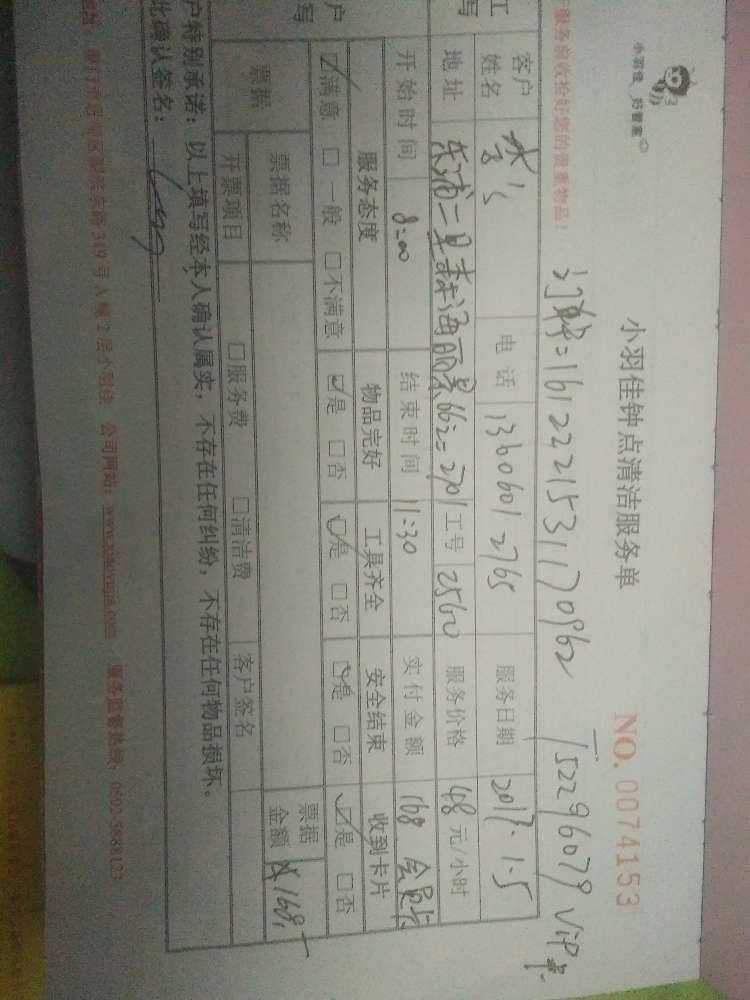 小羽佳 好管家
小羽佳钟点清洁服务单
NO. 0074153
服务前收拾好您的贵重物品!
1612221531170962 15229607​9 VIP
客户姓名 李 电话 13606012765 服务日期 2017.1.5
地址 东浦一里森海丽景662=2701 工号 2560 服务价格 48 元/小时
开始时间 8:00 结束时间 11:30 实付金额 168 会员卡
服务态度 物品完好 工具齐全 安全结束 收到卡片
☑满意 □一般 □不满意 ☑是 □否 ☑是 □否 ☑是 □否 ☑是 □否
票据 票据名称 票据金额 ¥168
开票项目 □服务费 □清洁费 客户签名
户特别承诺:以上填写经本人确认属实,不存在任何纠纷,不存在任何物品损坏。
此确认签名:
319号A幢2层小羽佳 公司网站:www.xiaoyujia.com 服务监督热线:0592-5889123